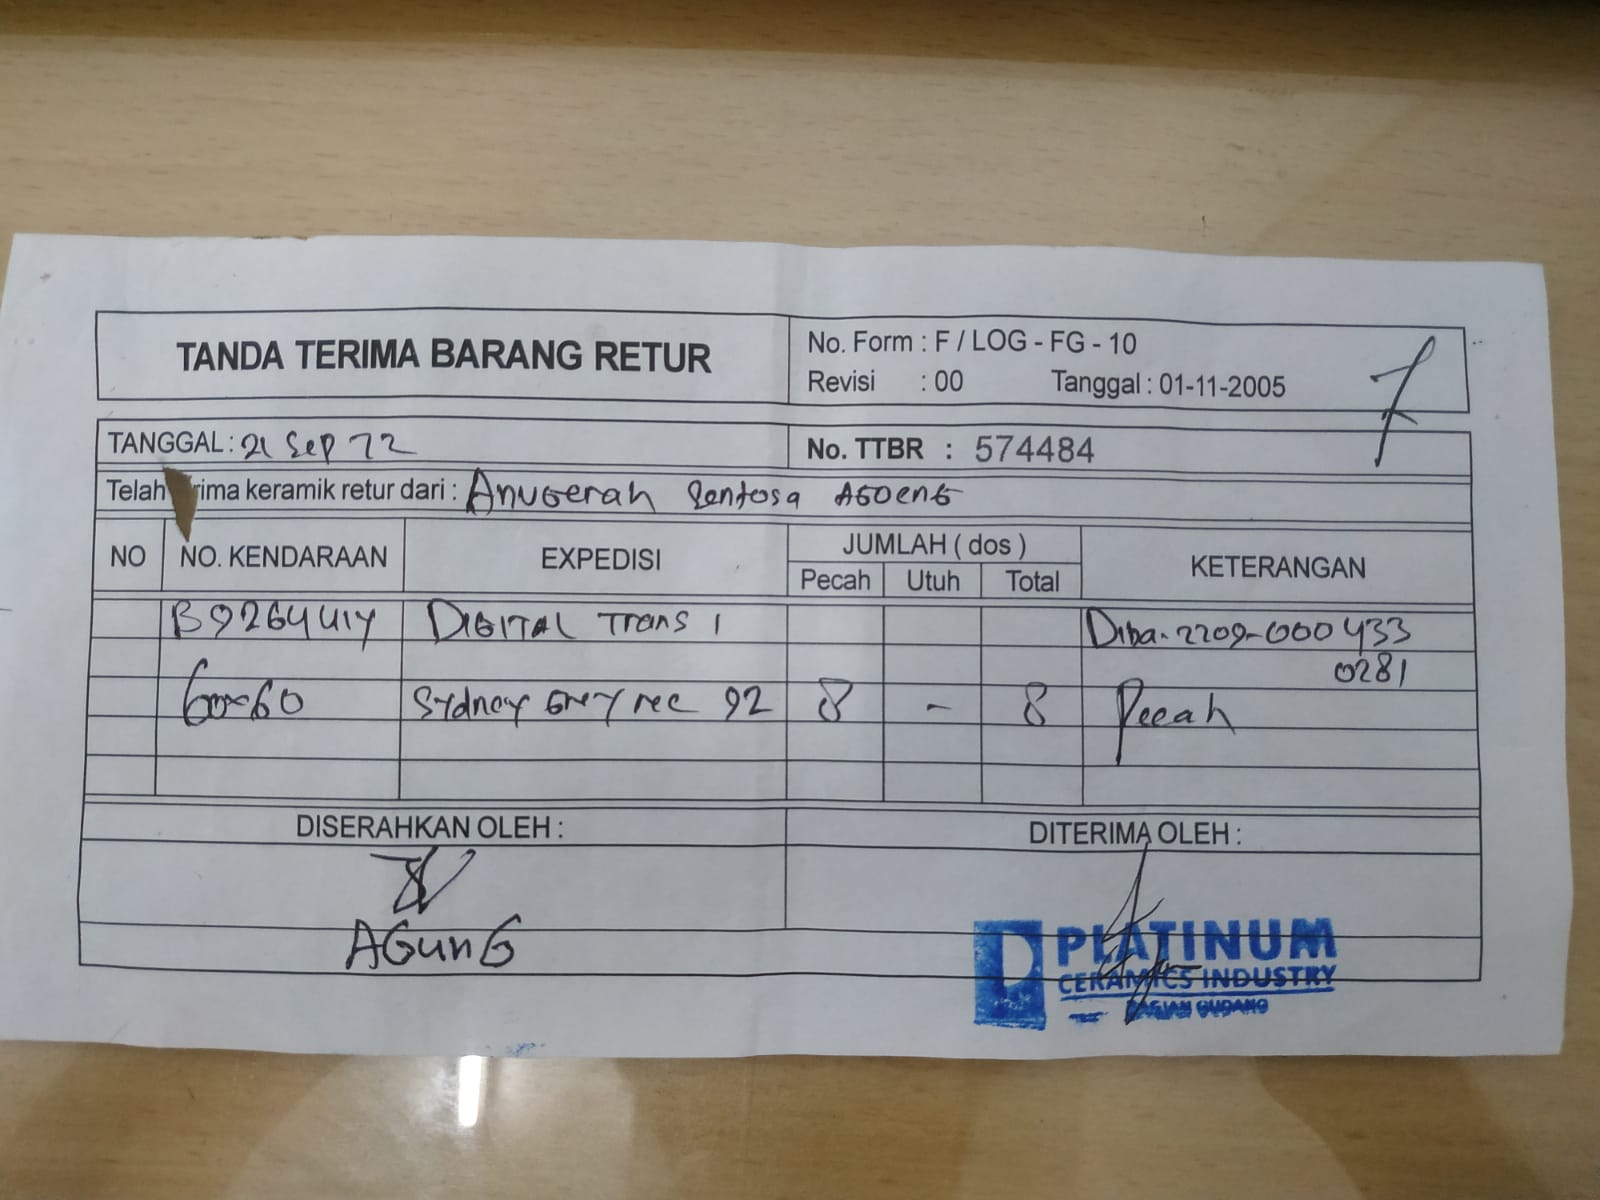 TANDA TERIMA BARANG RETUR
No. Form : F / LOG - FG - 10
Revisi : 00 Tanggal : 01-11-2005
TANGGAL : 21 Sep 22
No. TTBR : 574484
Telah rima keramik retur dari : Anugerah Sentosa AGOENG
NO NO. KENDARAAN EXPEDISI JUMLAH ( dos ) KETERANGAN
Pecah Utuh Total
B9264UIY DIGITAL Trans 1 Diba-2209-000433
0281
60x60 Sydney Grey rec 92 8 - 8 Pecah
DISERAHKAN OLEH : DITERIMA OLEH :
AGUNG
PLATINUM
CERAMICS INDUSTRY
BAGIAN GUDANG